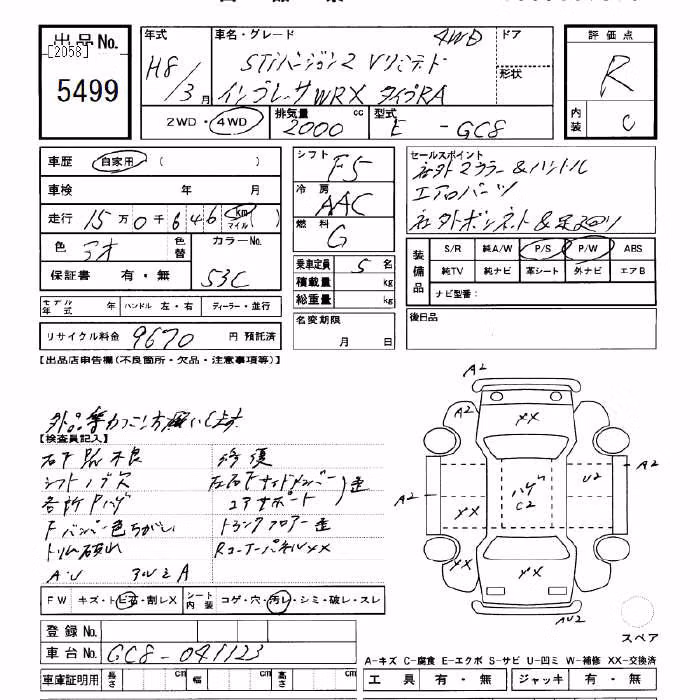 出品No. [2058] 5499
年式 H8/3月
車名・グレード STiバージョン2 Vリミテド 4WD
インプレッサWRX タイプRA
ドア
形状
評価点 R
内装 C
2WD・4WD
排気量 2000 cc
型式 E - GC8
車歴 自家用 ( )
車検 年 月
走行 15万0千646 km マイル ( )
色 アオ 色替
カラーNo. 53C
保証書 有・無
モデル年式 年 ハンドル 左・右 ディーラー・並行
リサイクル料金 9670 円 預託済
シフト F5
冷房 AAC
燃料 G
乗車定員 5 名
積載量 kg
総重量 kg
名変期限
月 日
セールスポイント
社外マフラー&ハンドル
エアロパーツ
社外ボンネット&足廻り
装備品
S/R 純A/W P/S P/W ABS
純TV 純ナビ 革シート 外ナビ エアB
ナビ型番:
後日品
【出品店申告欄(不良箇所・欠品・注意事項等)】
【検査員記入】
シフトノブ欠
各所Pハゲ
Fバンパー色ちがい
トランクフロアー歪
RコーナーパネルXX
エアサポート
歪
A・U
FW キズ・トビ石・割レX
シート内装 コゲ・穴・汚レ・シミ・破レ・スレ
登録No.
車台No. GC8-041123
車庫証明用 長さ cm 幅 cm 高さ cm
A2
A2
A2
XX
ハゲ
C2
U2
A2
A2
XX
XX
XX
AU2
スペア
A-キズ C-腐食 E-エクボ S-サビ U-凹ミ W-補修 XX-交換済
工具 有・無 ジャッキ 有・無